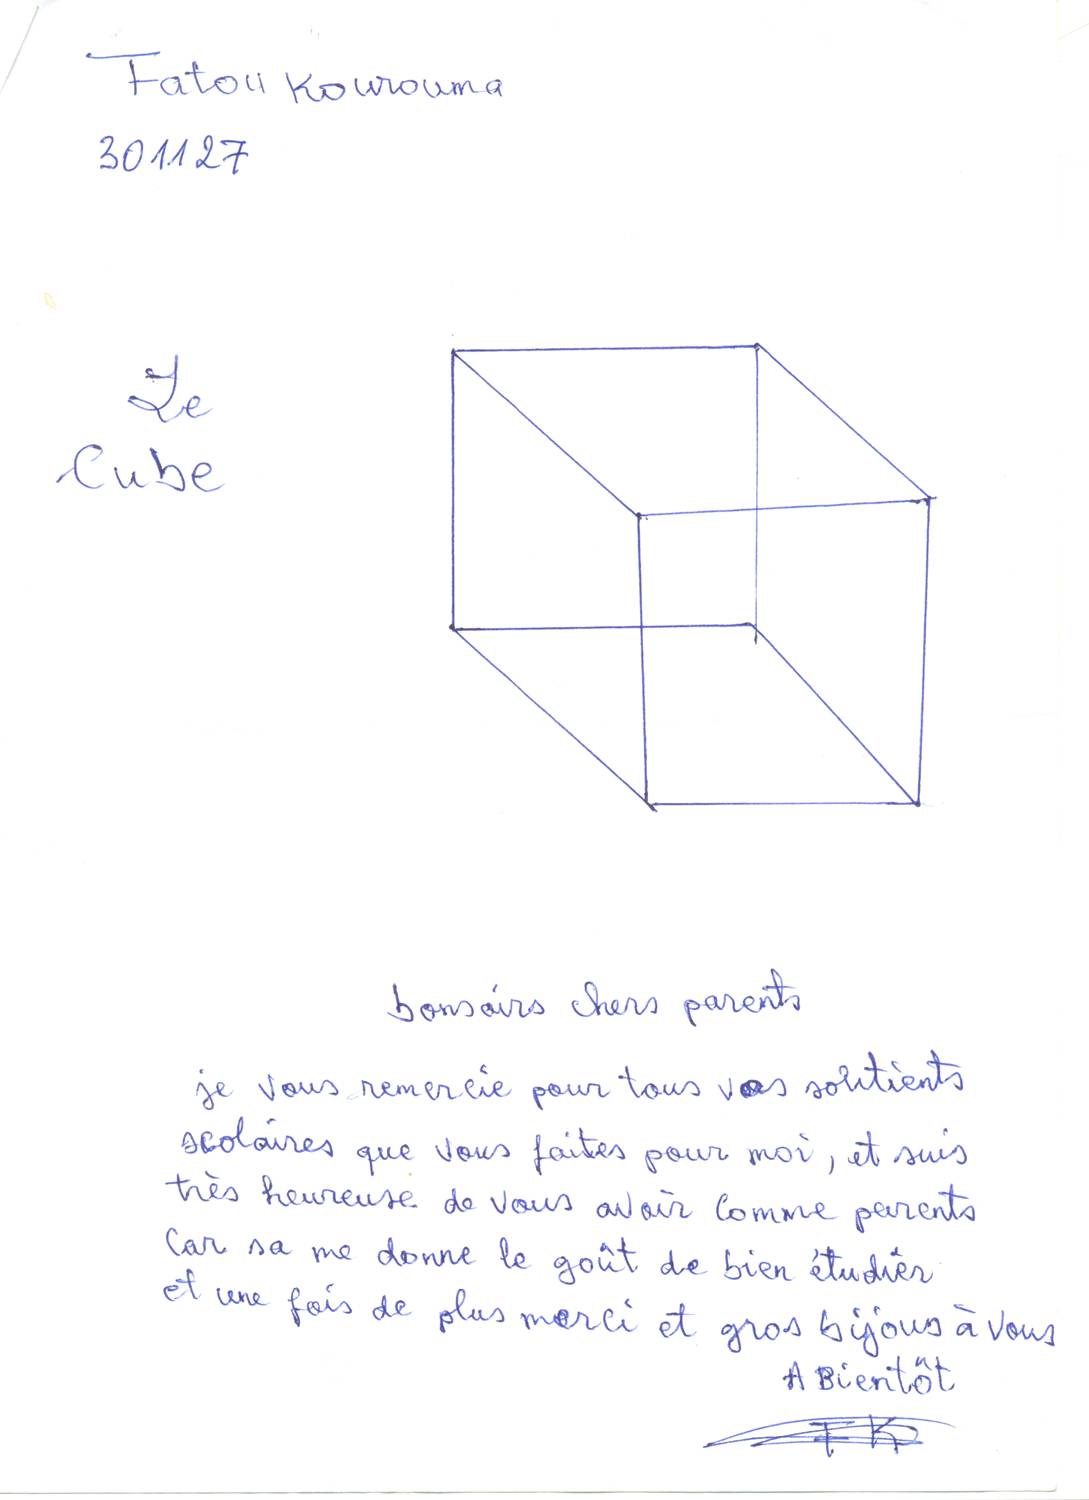 Fatou Kourouma
301127
Le
Cube
bonsoirs chers parents
je vous remercie pour tous vos soutients
scolaires que vous faites pour moi, et suis
très heureuse de vous avoir comme parents
Car sa me donne le goût de bien étudièr
et une fois de plus merci et gros bijous à vous
A Bientôt
FK